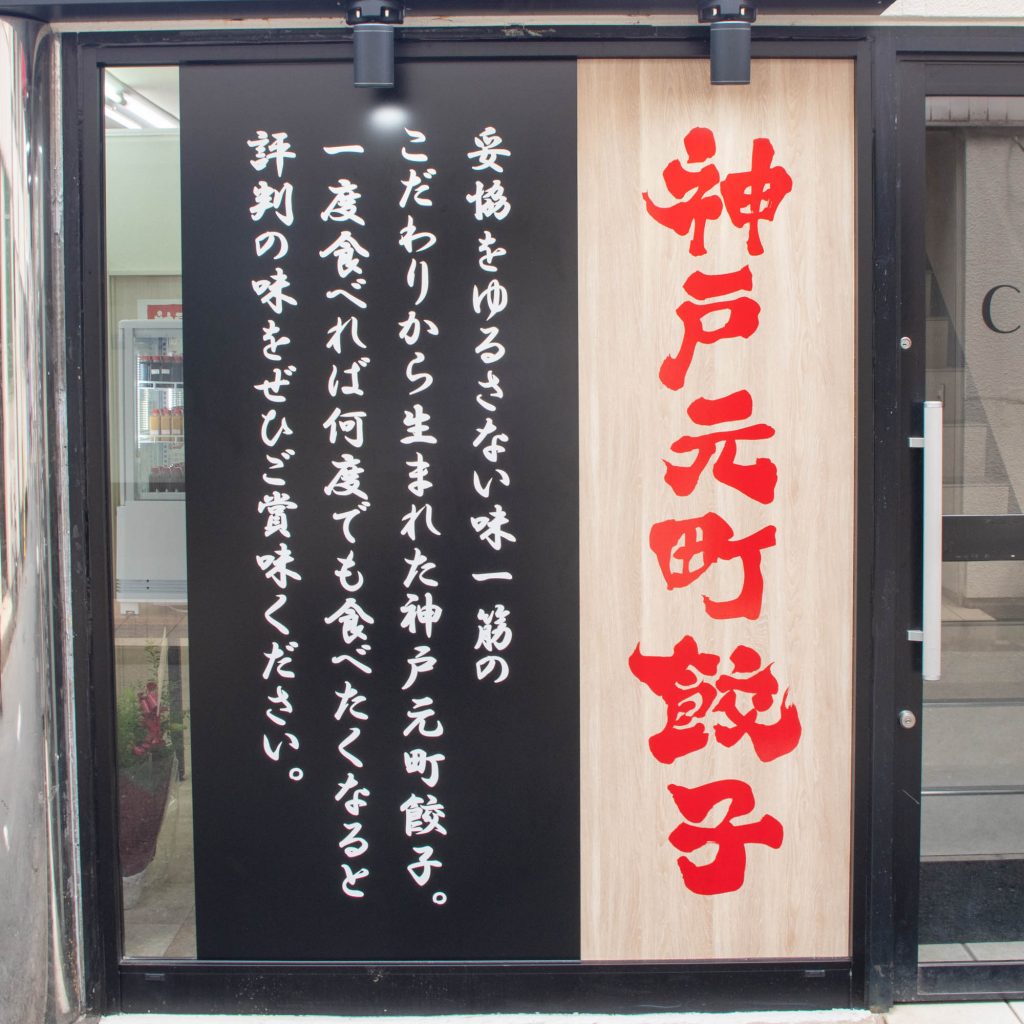 神戸元町餃子
妥協をゆるさない味一筋の
こだわりから生まれた神戸元町餃子。
一度食べれば何度でも食べたくなると
評判の味をぜひご賞味ください。
C